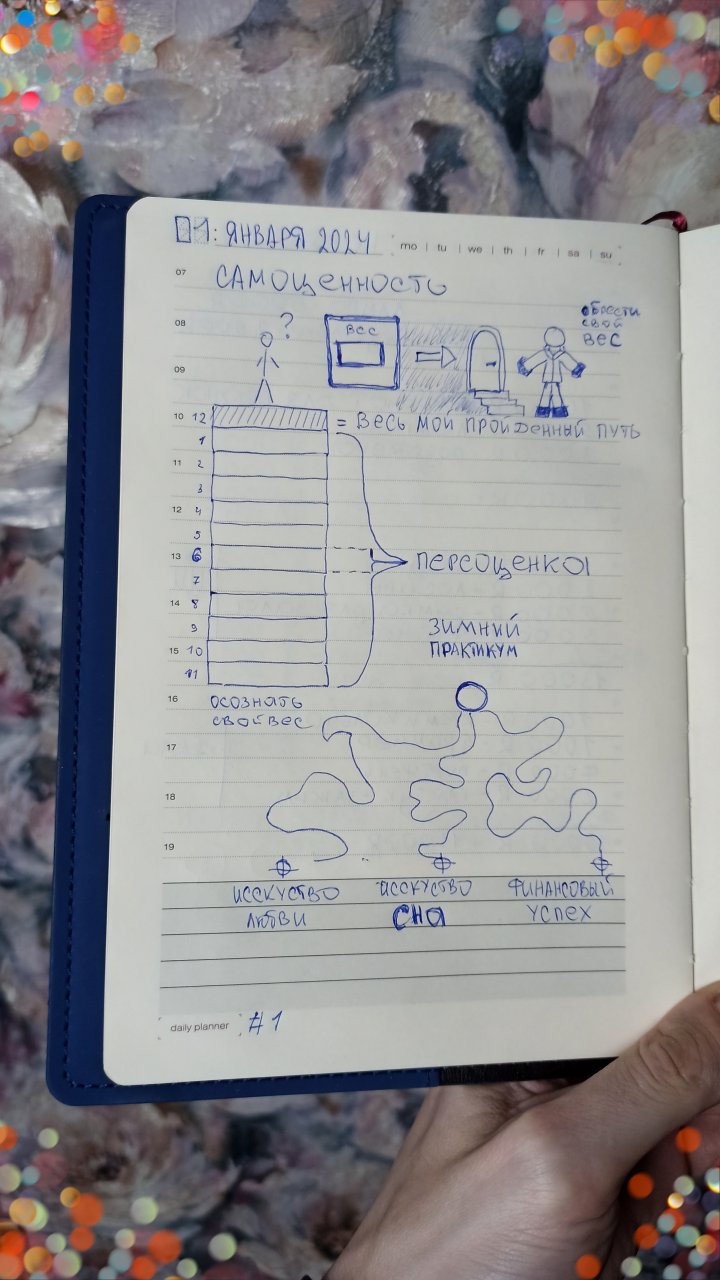 01: ЯНВАРЯ 2024
mo | tu | we | th | fr | sa | su
07
САМОЦЕННОСТЬ
08
?
ВЕС
ОБРЕСТИ
СВОЙ
ВЕС
09
10 12 = ВЕСЬ МОЙ ПРОЙДЕННЫЙ ПУТЬ
1
11 2
3
12 4
5
13 6
ПЕРЕОЦЕНКА
7
14 8
9
ЗИМНИЙ
15 10
ПРАКТИКУМ
11
16
ОСОЗНАТЬ
СВОЙ ВЕС
17
18
19
ИССКУСТВО
ЛЮБВИ
ИССКУСТВО
СНА
ФИНАНСОВЫЙ
УСПЕХ
daily planner #1